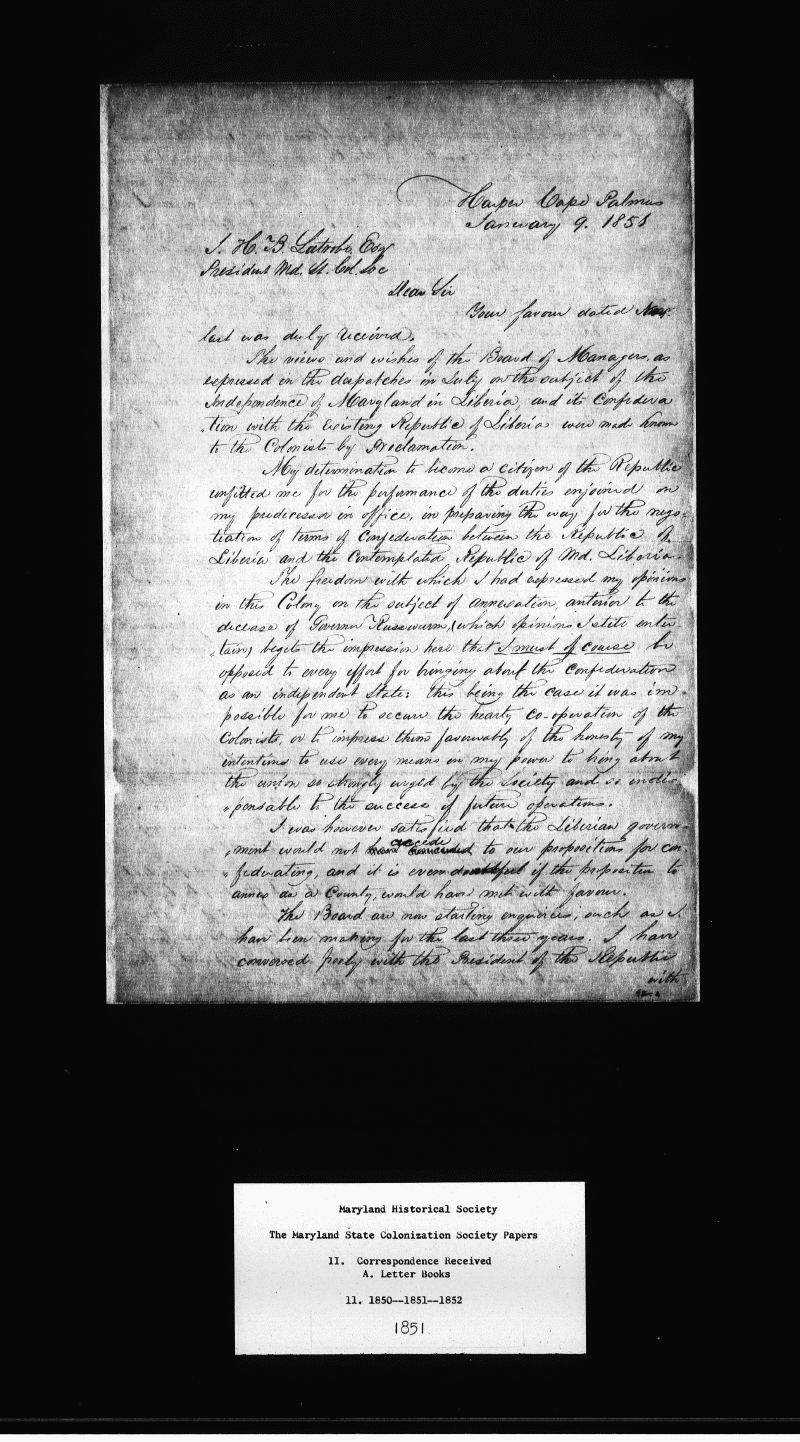 Harper Cape Palmas
January 9. 1851
J. H. B. Latrobe, Esq
President Md. St. Col. Soc
Dear Sir
Your favour dated Nov.
last was duly received.
The views and wishes of the Board of Managers, as
expressed in the despatches in July on the subject of the
Independence of Maryland in Liberia, and its Confedera
-tion with the existing Republic of Liberia were made known
to the Colonists by Proclamation.
My determination to become a citizen of the Republic
unfitted me for the performance of the duties enjoined on
my predecessor in office, in preparing the way for the nego-
tiation of terms of confederation between the Republic of
Liberia and the Contemplated Republic of Md. Liberia.
The freedom with which I had expressed my opinions
in this Colony on the subject of annexation, anterior to the
decease of Governor Russwurm, (which opinions I still enter
-tain) begets the impression here that I must of course be
opposed to every effort for bringing about the confederation
as an independent State: this being the case it was im
possible for me to secure the hearty co-operation of the
Colonists, or to impress them favourably of the honesty of my
intentions to use every means in my power to bring about
the union so strongly urged by the Society and so indis-
-pensable to the success of future operations.
I was however satisfied that the Liberian govern-
-ment would not accede to our propositions for con-
-federating, and it is even doubtful if the proposition to
annex as a County, would have met with favour.
The Board are now starting enquiries, such as I
have been making for the last three years. I have
conversed freely with the President of the Republic
with
Maryland Historical Society
The Maryland State Colonization Society Papers
II. Correspondence Received
A. Letter Books
11. 1850--1851--1852
1851